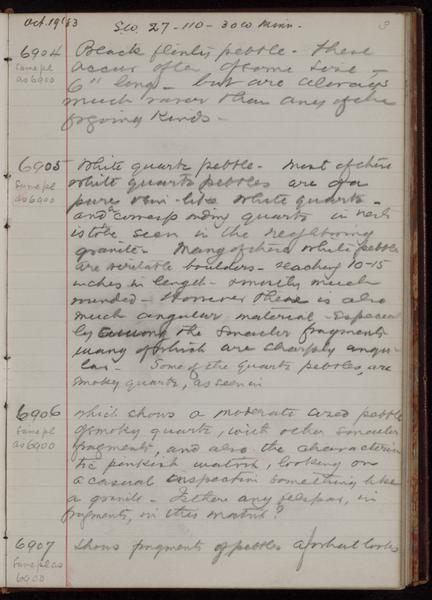 Oct. 19 '13 Sec. 27-110-30 W Minn. 3
6904 Black flinty pebble - These
Same pl occur often of some size -
as 6900 6" long - but are always
much rarer than any of the
forgoing kinds -
6905 White quartz pebble - Most of these
Same pl white quartz pebbles are of a
as 6900 pure vein-like white quartz -
and corresponding quartz in veins
is to be seen in the neighboring
granite - Many of these white pebbles
are veritable boulders - reaching 10-15
inches in length - mostly much
rounded - However there is also
much angular material - Especial
ly among the smaller fragments
many of which are sharply angu-
lar - Some of the quartz pebbles, are
smoky quartz, as seen in
6906 which shows a moderate sized pebble
Same pl of smoky quartz, with other smaller
as 6900 fragments, and also the characteris
tic pinkish matrix, looking on
a casual inspection something like
a granite - Is there any felspar, in
fragments, in this matrix?
6907 Shows fragments of pebbles of what looks
Same pl as
6900